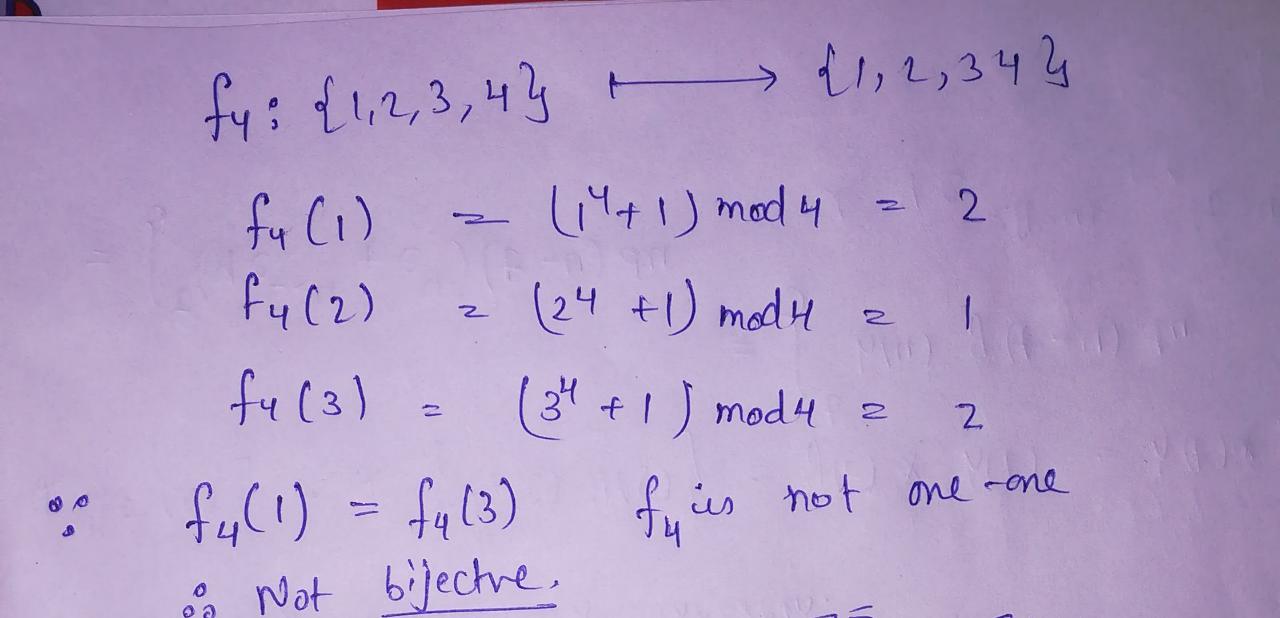 f₄: {1,2,3,4} ⟼ {1,2,3 4}
f₄(1) = (1⁴+1) mod 4 = 2
f₄(2) = (2⁴+1) mod 4 = 1
f₄(3) = (3⁴+1) mod 4 = 2
∵ f₄(1) = f₄(3) f₄ is not one-one
∴ Not bijectve.